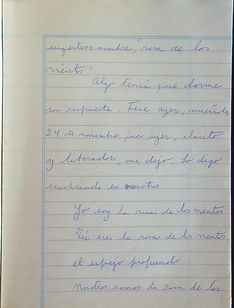 nombre, "rosa de los
vientos"
Algo tenía que darme
en respuesta. Fue ayer, miércoles,
24 de noviembre, fue ayer, clarito
y liberador, me dejo, lo dejo
sembrando en nosotros
Yo soy la rosa de los vientos
Tú eres la rosa de los vientos,
el espejo profundo
Nosotros somos la rosa de los